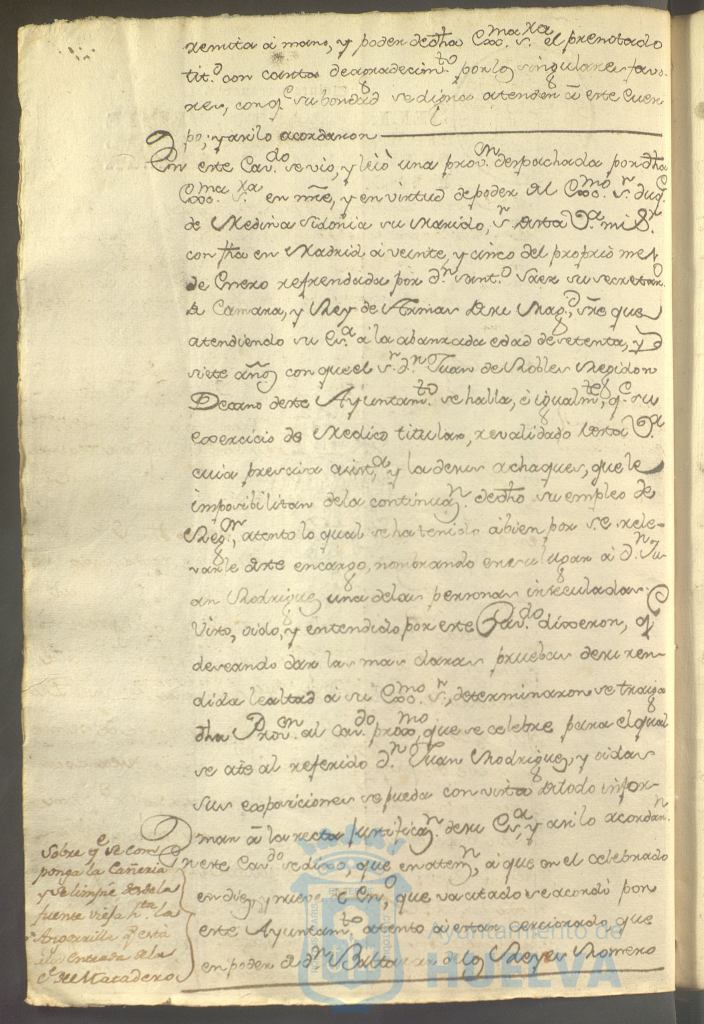 remita à mano, y poder de dha Exc.ma S.ra el prenotado
tit.o con carta de agradecim.to por los singulares favo-
res, con q.e su bondad se digna atender à este Cuer-
po; y asi lo acordaron
En este Cav.do se vio, y leiò una prov.n despachada por dha
Exc.ma S.ra en nre, y en virtud de poder del Exc.mo S.r Duq.e
de Medina Sidonia su Marido, S.r de esta V.a mi S.r
con fha en Madrid à veinte, y cinco del proprio mes
de Enero refrendada por D.n Ant.o Saez su secretar.o
de Camara, y Rey de Armas de su Mag.d, sre que
atendiendo su Ex.a à la abanzada edad de setenta, y
siete años con que el S.r D.n Juan de Robles Regidor
Decano deste Ayuntam.to se halla, è igualm.te q.e su
exercicio de Medico titular, revalidado desta V.a
cuia precisa asist.a y la demas achaques, que le
imposibilitan de la continuaz.n de dho su empleo de
Reg.or, atento lo qual se ha tenido à bien por S.E. rele-
varle deste encargo, nombrando en su lugar à D.n Ju-
an Rodriguez una de las personas inseculadas.
Visto, oido, y entendido por este Cav.do dixeron, q.e
deseando dar las mas claras pruebas de su ren-
dida lealtad à su Exc.mo S.r, determinaron se traiga
dha Prov.n al Cav.do prox.mo que se celebre para el qual
se cite al referido D.n Juan Rodriguez, y oidas
sus exposiciones se pueda con vista de todo infor-
mar à la recta justificaz.n de su Ex.a, y asi lo acordar.n
En este Cav.do se dixo, que en atenz.n à que en el celebrado
en diez y nueve de En.o, que va citado se acordò por
este Ayuntam.to atento à estar cerciorado que
en poder de D.n Baltasar de los Reyes Romero
Sobre q.e se com-
ponga la Cañeria
y se limpie desde la
fuente vieja h.ta la
q.e está
a la entrada de la
C.e del Matadero
Ayuntamiento de
HUELVA